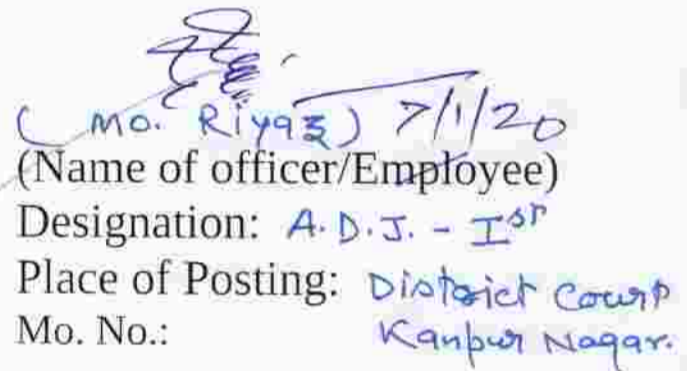 ( Mo. Riyaz) 7/1/20
(Name of officer/Employee)
Designation: A.D.J. - Ist
Place of Posting: District Court
Mo. No.: Kanpur Nagar.